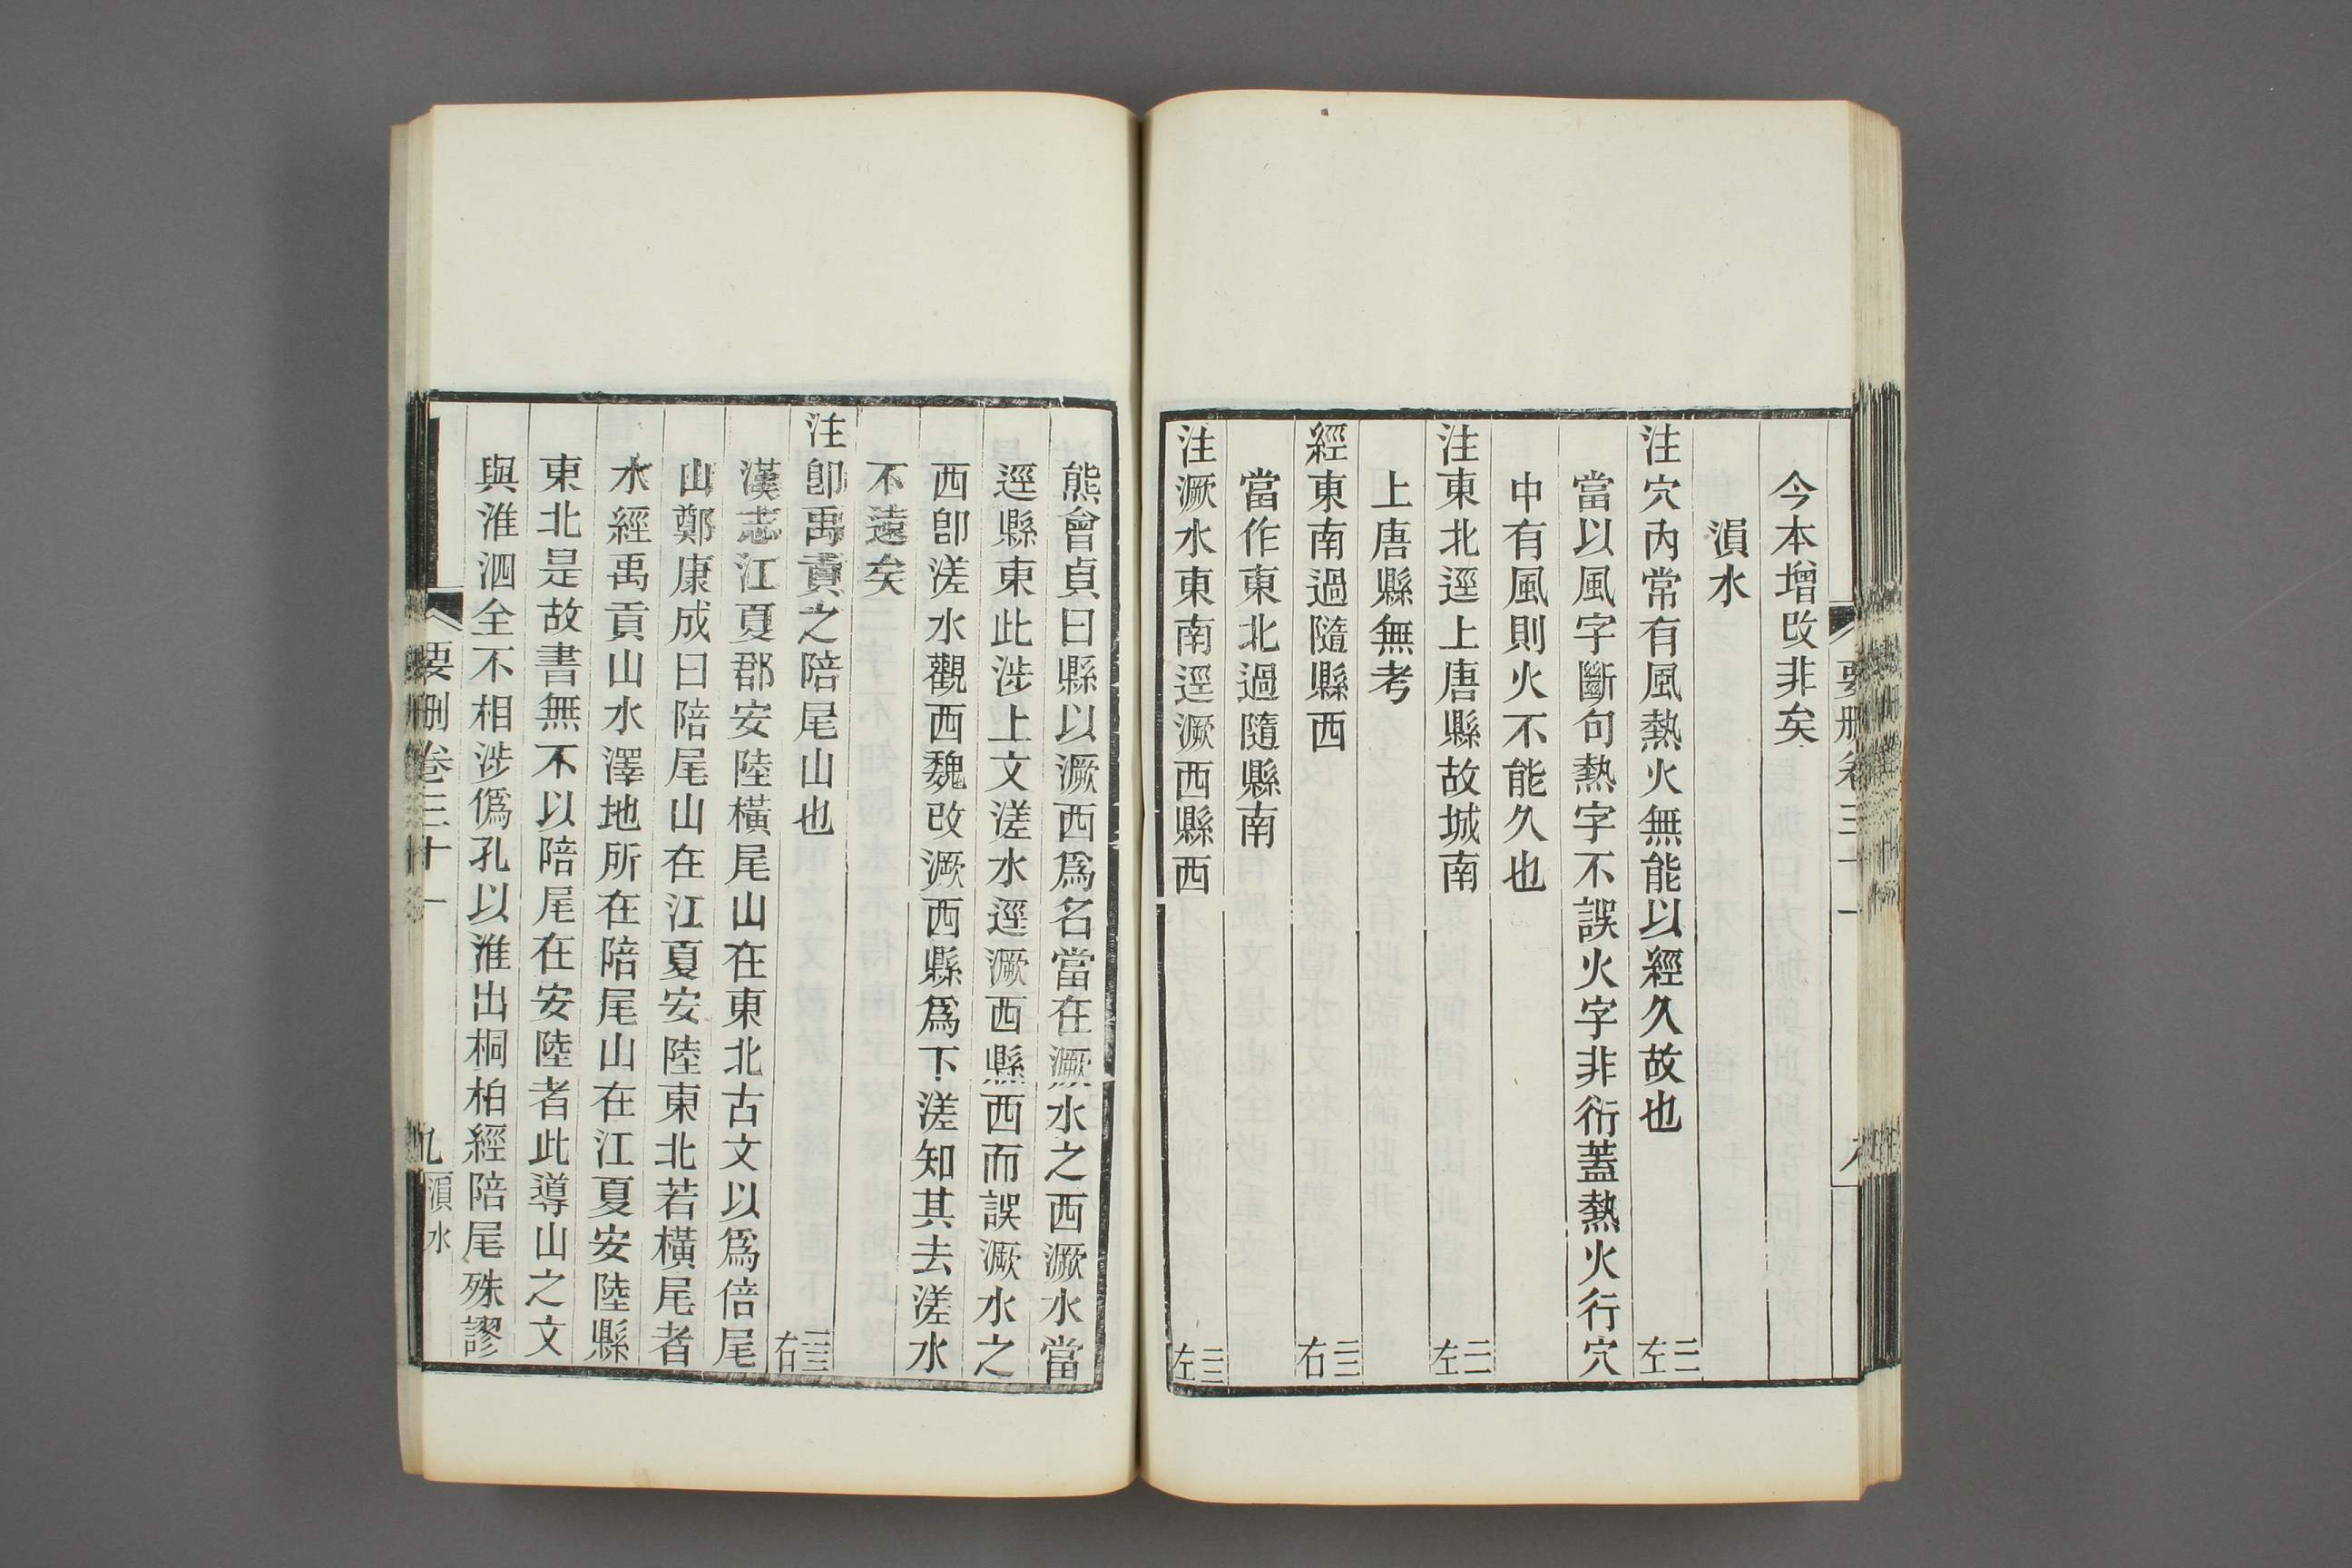 今本增改非矣
溳水
注穴內常有風熱火無能以經久故也 二二左
當以風字斷句熱字不誤火字非衍蓋熱火行穴
中有風則火不能久也
注東北逕上唐縣故城南 二二左
上唐縣無考
經東南過隨縣西 二三右
當作東北過隨縣南
注㵐水東南逕㵐西縣西 二三左
熊會貞曰縣以㵐西爲名當在㵐水之西㵐水當
逕縣東此涉上文溠水逕㵐西縣西而誤㵐水之
西卽溠水觀西魏改㵐西縣爲下溠知其去溠水
不遠矣
注卽禹貢之陪尾山也 二三右
漢志江夏郡安陸橫尾山在東北古文以爲倍尾
山鄭康成曰陪尾山在江夏安陸東北若橫尾者
水經禹貢山水澤地所在陪尾山在江夏安陸縣
東北是故書無不以陪尾在安陸者此導山之文
與淮泗全不相涉僞孔以淮出桐柏經陪尾殊謬
要刪卷三十一
九
溳水